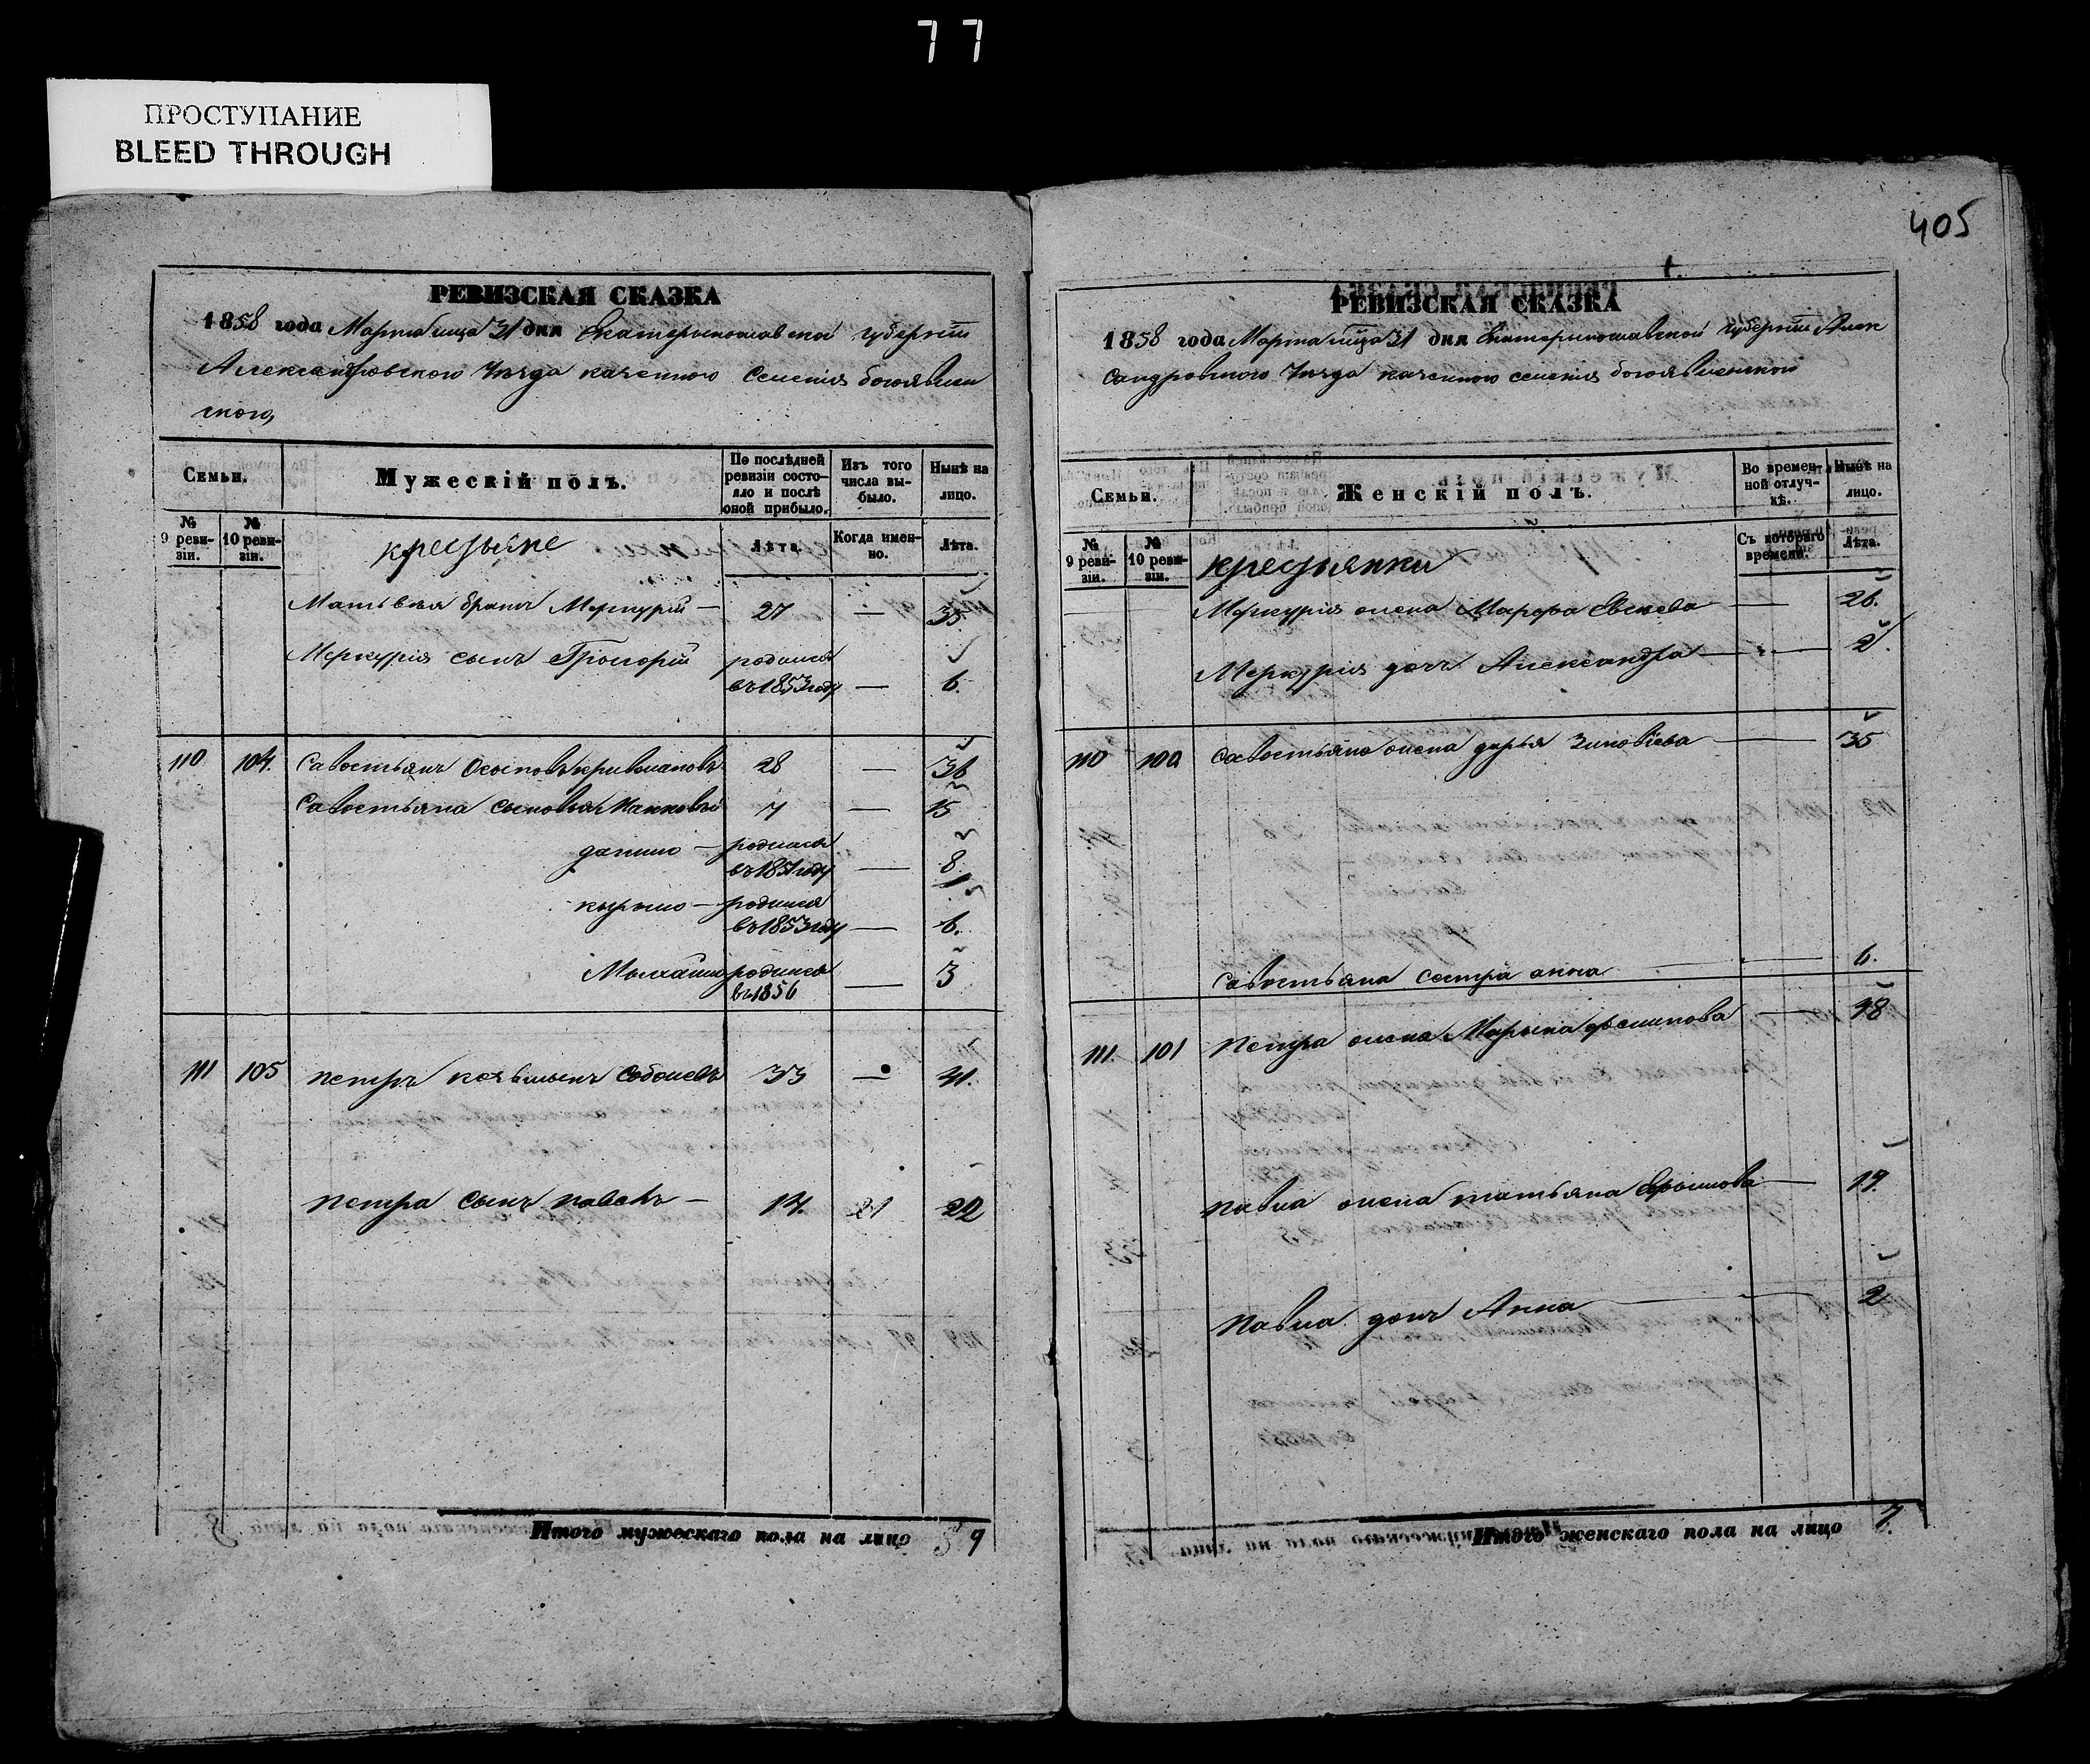 77
ПРОСТУПАНИЕ
BLEED THROUGH
405
РЕВИЗСКАЯ СКАЗКА
1858 года Марта м͞ца 31 дня Екатеринославской губерніи
Александровского Уезда казенного селенія богоявлен
ского,
Семьи.
Мужескій полъ.
По послѣдней ревизіи состояло и послѣ оной прибыло.
Изъ того числа выбыло.
Нынѣ на лицо.
№ 9 ревизіи.
№ 10 ревизіи.
крестьяне
Лѣта.
Когда именно.
Лѣта.
Матвея братъ Меркурій — 27 — 35.
Меркурія сынъ Григорій родился
въ 1853 году — 6.
110 104. Савостьянъ Осиповъ 28 — 36
Савостьяна сыновья 7 — 15
данило — родился
въ 1851 году — 8.
кырыло — родился
въ 1853 году — 6.
Мыхайло родился
въ 1856 — 3
111 105 петръ Соболевъ 33 — 41.
петра сынъ павелъ — 14. 21 22
Итого мужескаго пола на лицо 9
РЕВИЗСКАЯ СКАЗКА
1858 года Марта м͞ца 31 дня Екатеринославской губерніи Алек
сандровского Уезда казенного селенія богоявленской
Семьи.
Женскій полъ.
Во временной отлучкѣ.
Нынѣ на лицо.
№ 9 ревизіи.
№ 10 ревизіи.
крестьянки
Съ котораго времени.
Лѣта.
Меркурія жена Марфа — 26.
Меркурія дочь Александра — 2.
110 100 Савостьяна жена дарья Зиновіева — 35
Савостьяна сестра анна — 6.
111. 101 Петра жена Марына — 48
павла жена татьяна — 19.
павла дочь Анна — 2
Итого женскаго пола на лицо 7.